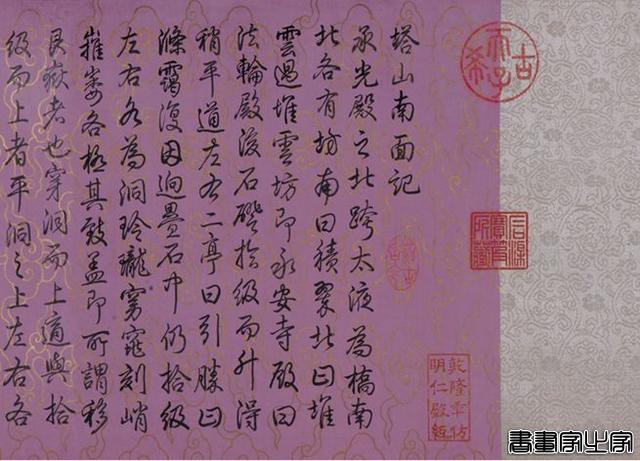 古希天子
石渠寶笈所藏
乾隆年仿明仁殿紙
塔山南面記
承光殿之北跨太液為橋南
北各有坊南曰積翠北曰堆
雲過堆雲坊即永安寺殿曰
法輪殿後石磴拾級而升得
稍平道左右二亭曰引勝曰
滌靄復因迥疊石中仍拾級
左右各為洞玲瓏窈窕刻峭
嶊崣各極其致蓋即所謂移
艮嶽者也穿洞而上適與拾
級而上者平洞之上左右各
書畫家止字